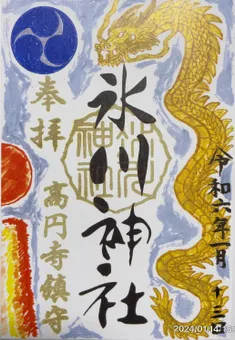 令和六年一月十三日
氷川神社
奉拝
高円寺鎮守
氷川神社
2024/01/14